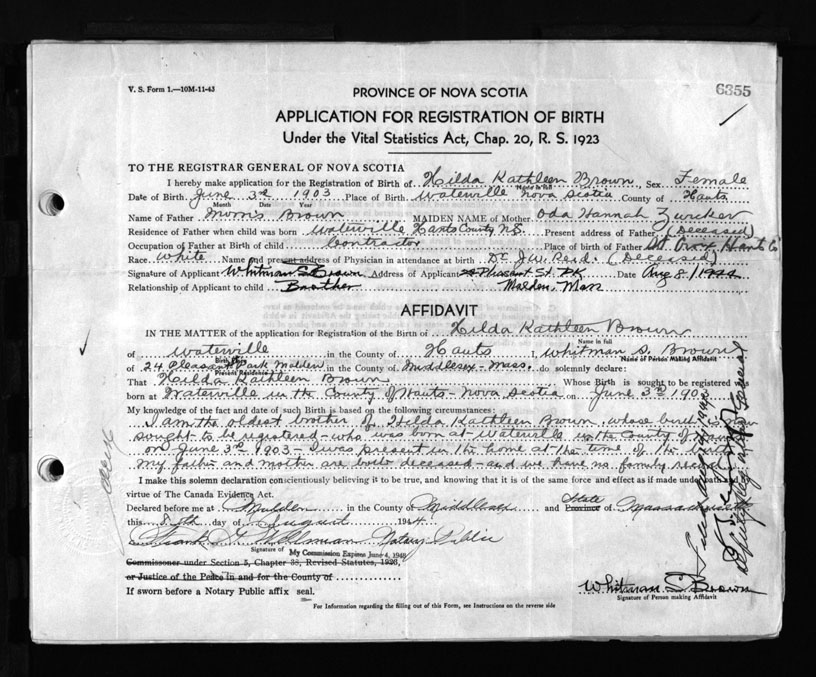 V. S. Form 1.—10M-11-43
6355
PROVINCE OF NOVA SCOTIA
APPLICATION FOR REGISTRATION OF BIRTH
Under the Vital Statistics Act, Chap. 20, R. S. 1923
TO THE REGISTRAR GENERAL OF NOVA SCOTIA
I hereby make application for the Registration of Birth of Hilda Kathleen Brown, Sex Female
Name in full
Date of Birth June 3rd 1903 Place of Birth Waterville Nova Scotia County of Hants
Month Date Year
Name of Father Morris Brown MAIDEN NAME of Mother Oda Hannah Zwicker
Residence of Father when child was born Waterville Hants County N.S. Present address of Father (Deceased)
Occupation of Father at Birth of child Contractor Place of birth of Father St Croix Hants Co
Race White Name and present address of Physician in attendance at birth Dr. Reid. (Deceased)
Signature of Applicant Whitman S. Brown Address of Applicant 24 Pleasant St. PK Date Aug 8/1944
Relationship of Applicant to child Brother Malden, Mass
AFFIDAVIT
IN THE MATTER of the application for Registration of the Birth of Hilda Kathleen Brown
Name in full
of Waterville in the County of Hants I, Whitman S. Brown
Birth Place Name of Person making Affidavit
of 24 Pleasant Park Malden in the County of Middlesex - Mass. do solemnly declare:
Present Residence
That Hilda Kathleen Brown Whose Birth is sought to be registered
born at Waterville in the County of Hants - Nova Scotia on June 3rd 1903
My knowledge of the fact and date of such Birth is based on the following circumstances:
I am the oldest brother of Hilda Kathleen Brown, whose birth is
sought to be registered - who was born at Waterville in the County of Hants
on June 3rd 1903 - I was present in the home at the time of the birth
My father and mother are both deceased - and we have no family record
I make this solemn declaration conscientiously believing it to be true, and knowing that it is of the same force and effect as if made under oath and
virtue of The Canada Evidence Act.
Declared before me at Malden in the County of Middlesex and State Province of Massachusetts
this 8th day of August 1944.
Frank Wellman Notary Public
Signature of My Commission Expires June 4, 1948
Commissioner under Section 5, Chapter 38, Revised Statutes, 1923,
or Justice of the Peace in and for the County of
If sworn before a Notary Public affix seal.
Whitman S. Brown
Signature of Person making Affidavit
For Information regarding the filling out of this Form, see Instructions on the reverse side